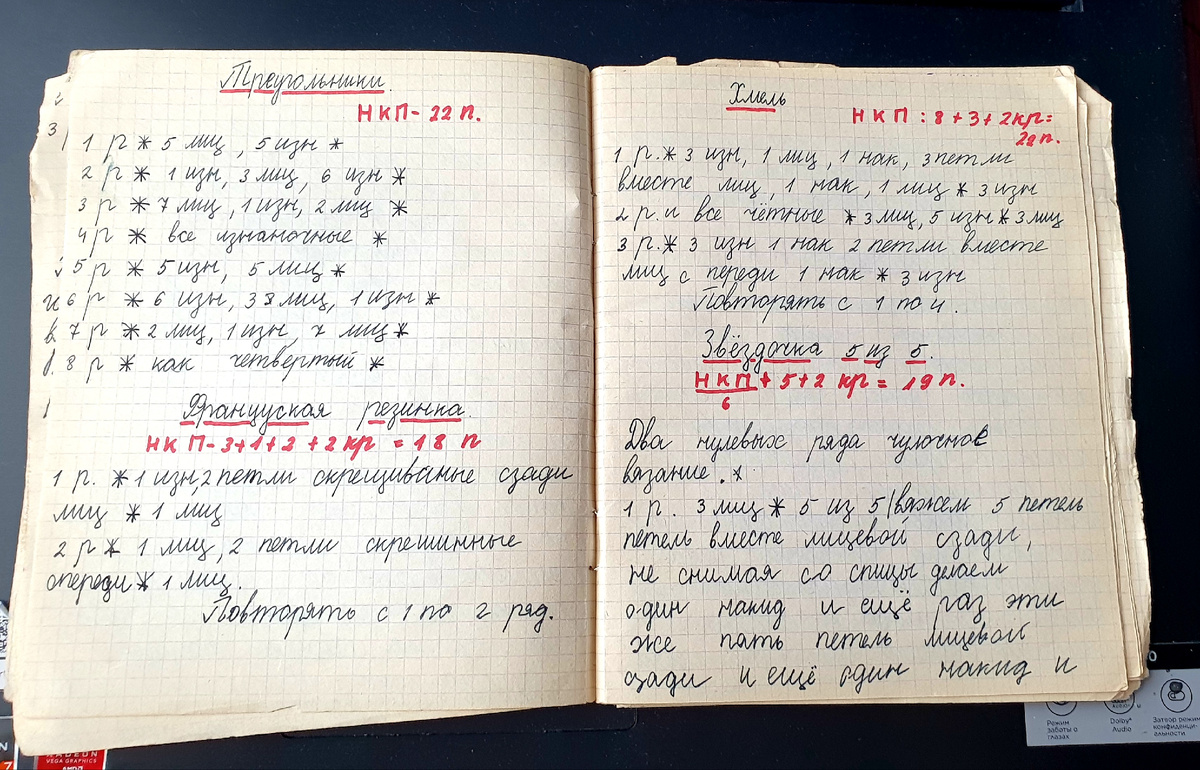 Треугольники
НКП-22п.
1 р * 5 лиц, 5 изн *
2 р * 1 изн, 3 лиц, 6 изн *
3 р * 7 лиц, 1 изн, 2 лиц *
4 р * все изнаночные *
5 р * 5 изн, 5 лиц *
6 р * 6 изн, 3 лиц, 1 изн *
7 р * 2 лиц, 1 изн, 7 лиц *
8 р * как четвертый *
Француская резинка.
НКП-3+1+2+2кр=18п
1 р. * 1 изн, 2 петли скрещиваные сзади
лиц * 1 лиц
2 р * 1 лиц, 2 петли скрешинные
спереди * 1 лиц.
Повторять с 1 по 2 ряд.
Хмель
НКП:8+3+2кр=
29п.
1 р. * 3 изн, 1 лиц, 1 нак, 3петли
вместе лиц, 1 нак, 1 лиц * 3 изн
2 р. и все чётные * 3 лиц, 5 изн * 3 лиц
3 р. * 3 изн 1 нак 2 петли вместе
лиц с переди 1 нак * 3 изн
Повторять с 1 по 4.
Звёздочка 5 из 5.
НКП+5+2 кр=19п.
6
Два нулевых ряда чулочное
вязание. *
1 р. 3 лиц * 5 из 5/вяжем 5 петель
петель вместе лицевой сзади,
не снимая со спицы делаем
один накид и ещё раз эти
же пять петель лицевой
сзади и ещё один накид и
Режим
заботы о
глазах
Dolby
Audio
Затвор режим
конфиденци-
альности
RADEON
VEGA GRAPHICS